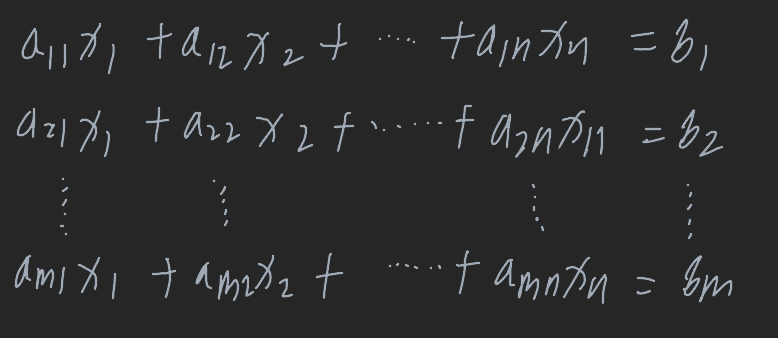 a₁₁x₁ + a₁₂x₂ + ····· + a₁ₙxₙ = b₁
a₂₁x₁ + a₂₂x₂ + ······ + a₂ₙxₙ = b₂
⋮ ⋮ ⋮ ⋮
aₘ₁x₁ + aₘ₂x₂ + ······ + aₘₙxₙ = bₘ